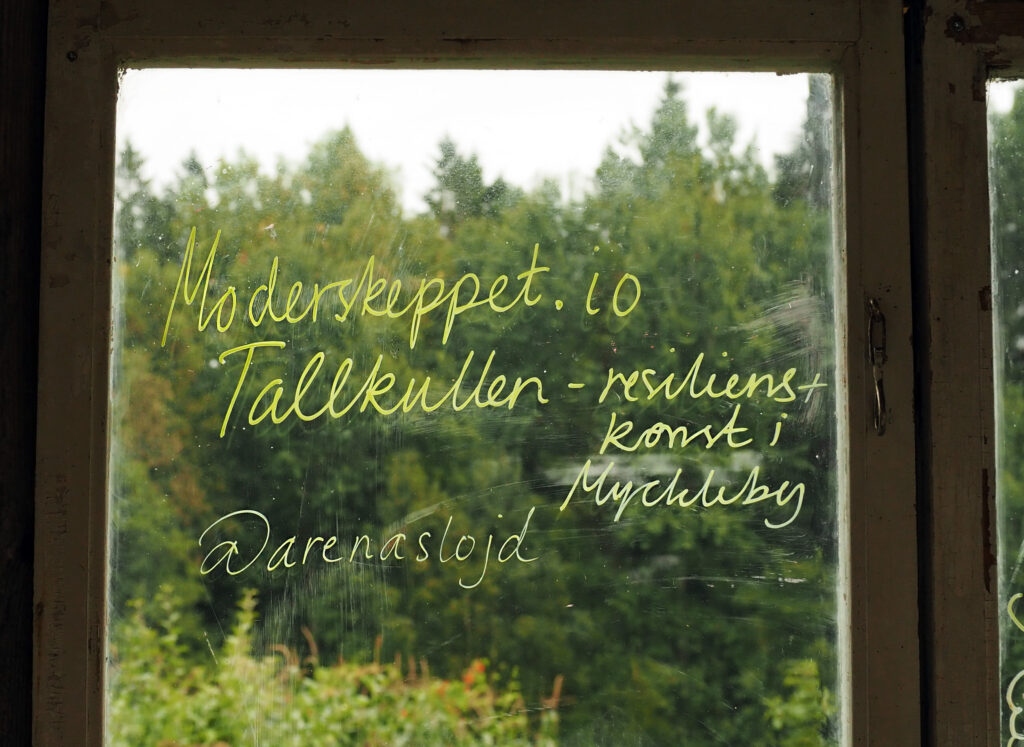 Moderskeppet.io
Tallkullen - resiliens+
konst i
Myckleby
@arenaslojd